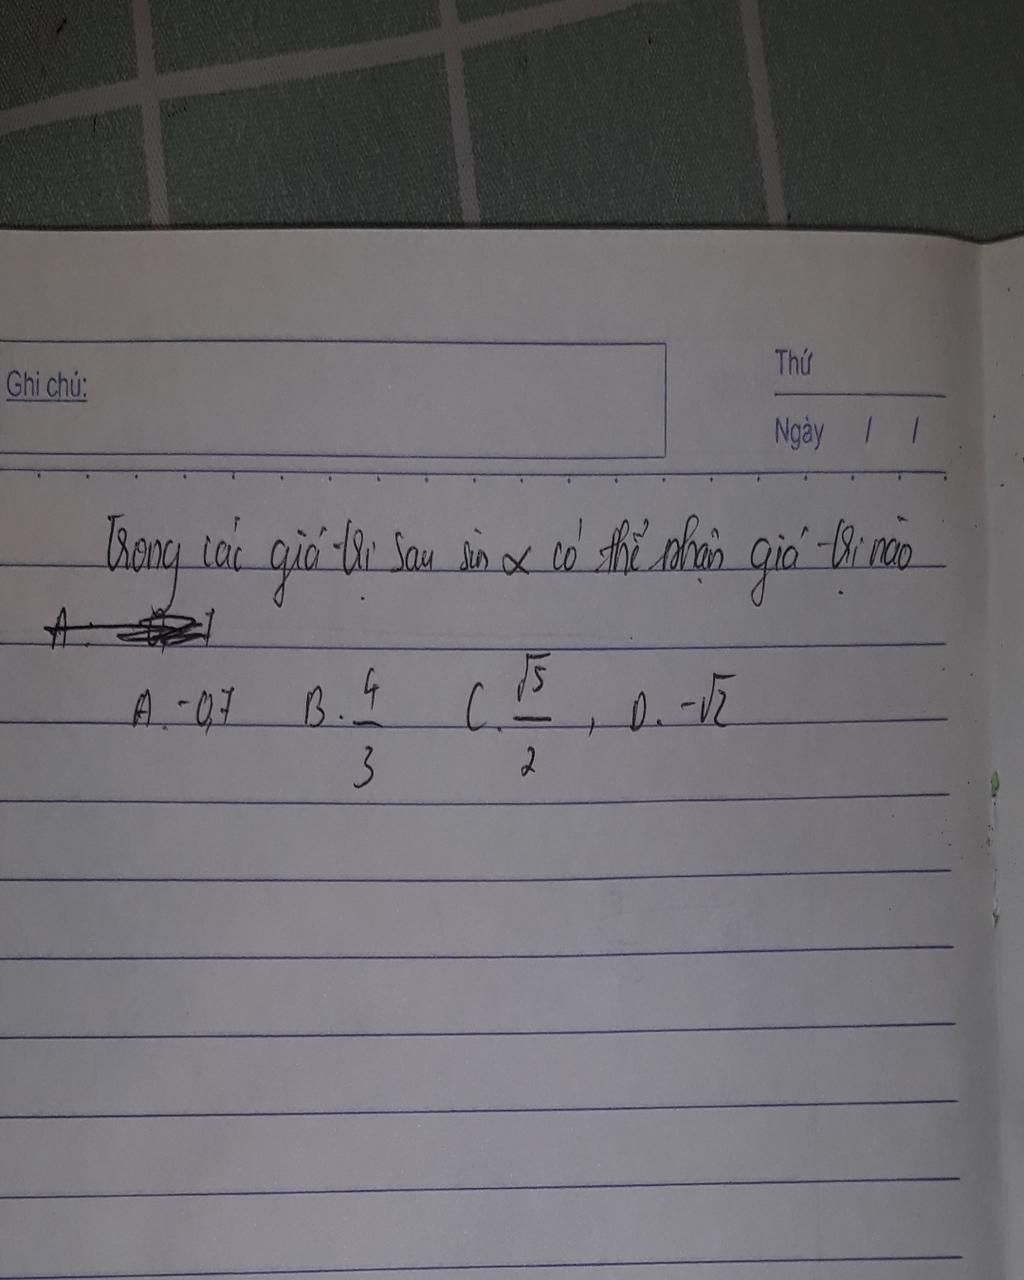 Ghi chú:
Thứ
Ngày / /
Trong các giá trị sau sin α có thể nhận giá trị nào
A. -0,7 B. 4/3 C. √5/2, D. -√2